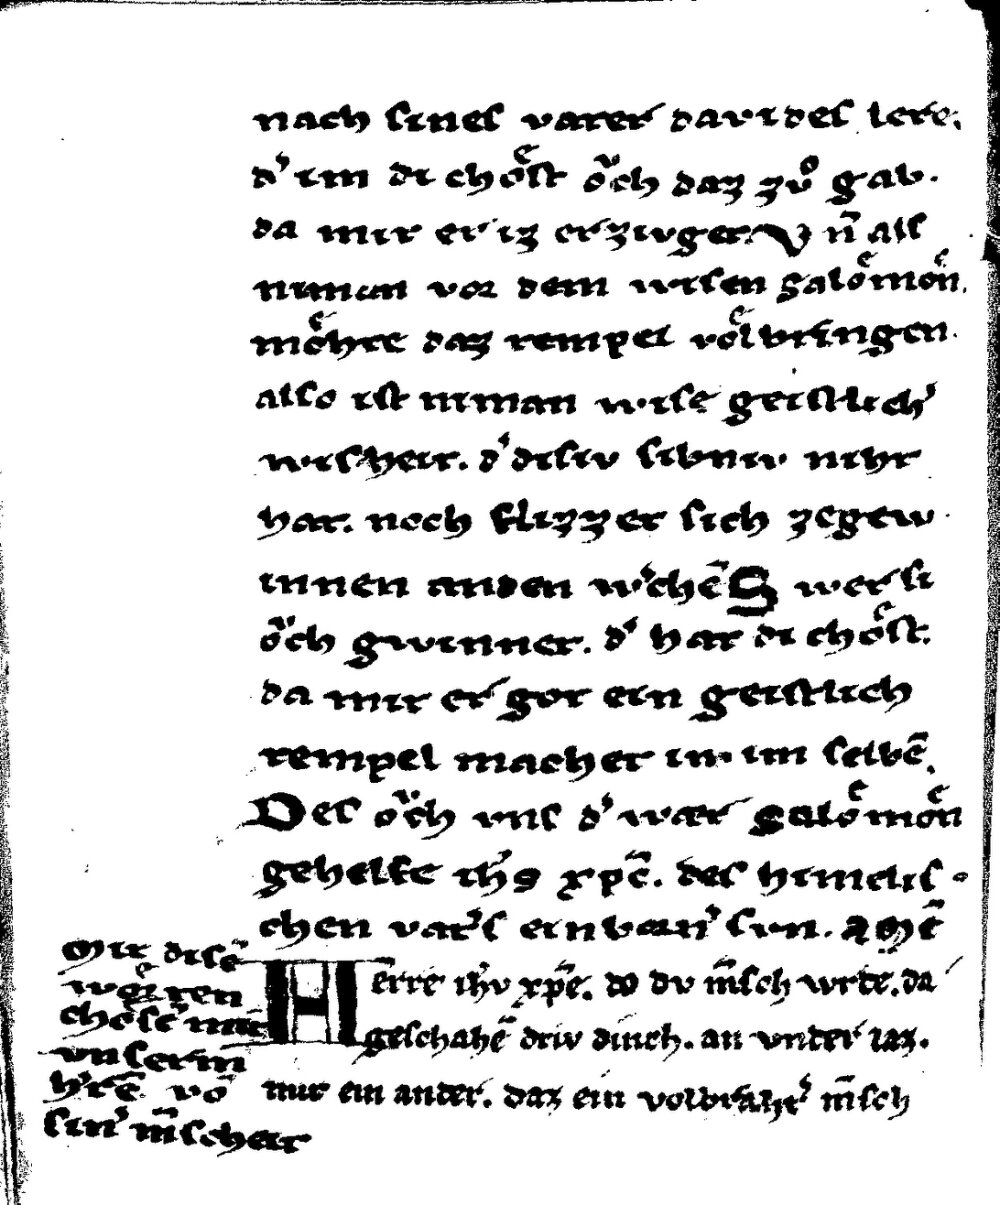 nach sines vater davides lere.
d' im di choͤst oͮch daz zuͦ gab.
da mit er iz erzivget. Vn̄ als
niman vor dem wisen Saloͤmoͤn.
moͤhte daz tempel voͤlbringen.
also ist niman wise geistlich'
wisheit. d' disiv sibniv niht
hat. noch flizzet sich zegew
innen anden w'chē Swer si
oͮch gwinnet. d' hat di choͤst.
da mit er got ein geistlich
tempel machet in im selbē.
Des oͮch vns d' waer Saloͤmoͤn
gehelfe ih's xpc̄. des himelis
chen vat's einborn' svn. AMĒ
Mit disē
wor̄ten
choͤse mit
vnserm
h'rē vō
sin' m̄scheit
Hērre ih'v xpē. do dv m̄sch wrde. da
geschahē driv dinch. an vnter laz.
mit ein ander. daz ein volbraht' m̄sch